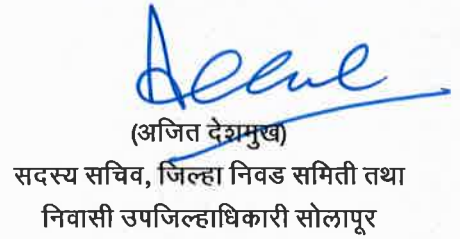 (अजित देशमुख)
सदस्य सचिव, जिल्हा निवड समिती तथा
निवासी उपजिल्हाधिकारी सोलापूर